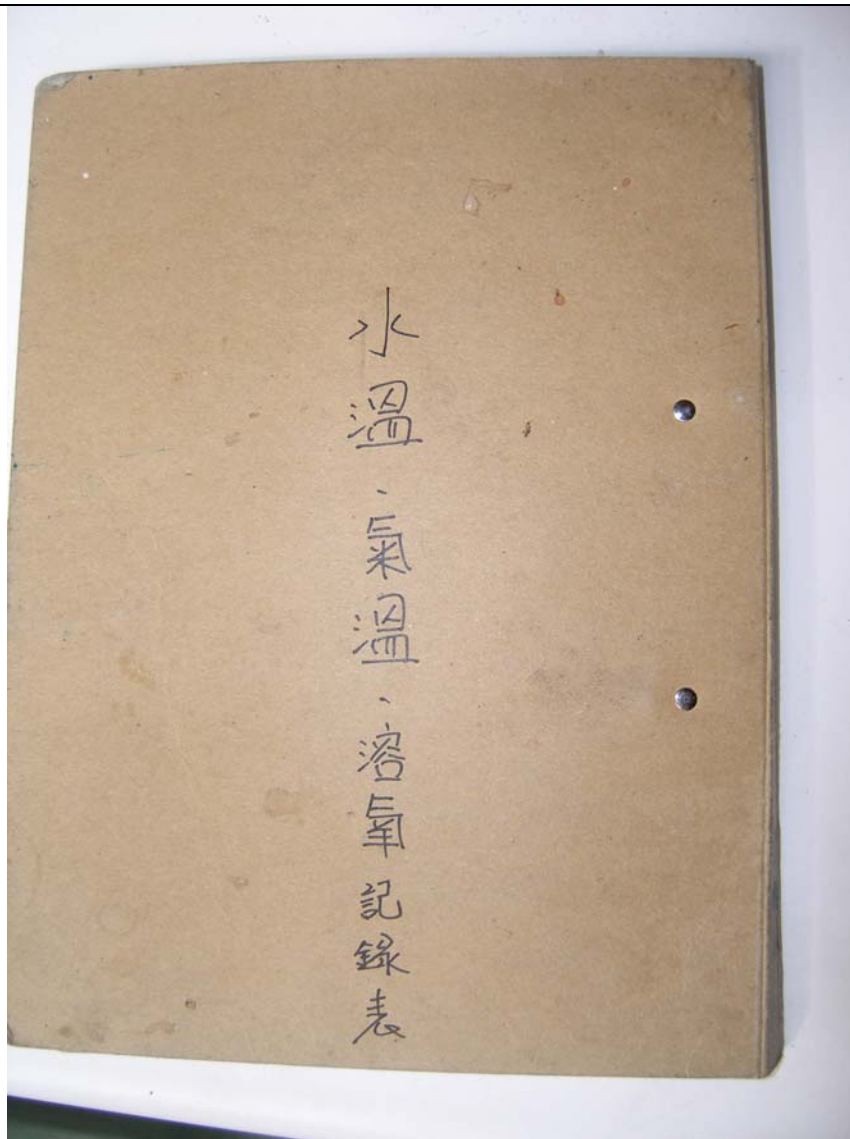 水溫、氣溫、溶氧記錄表